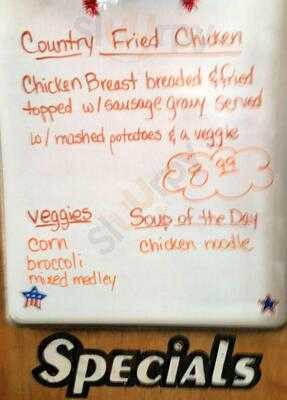 Country Fried Chicken
Chicken Breast breaded & fried
topped w/ sausage gravy served
w/ mashed potatoes & a veggie
8.99
veggies
corn
broccoli
mixed medley
Soup of the Day
chicken noodle
Specials